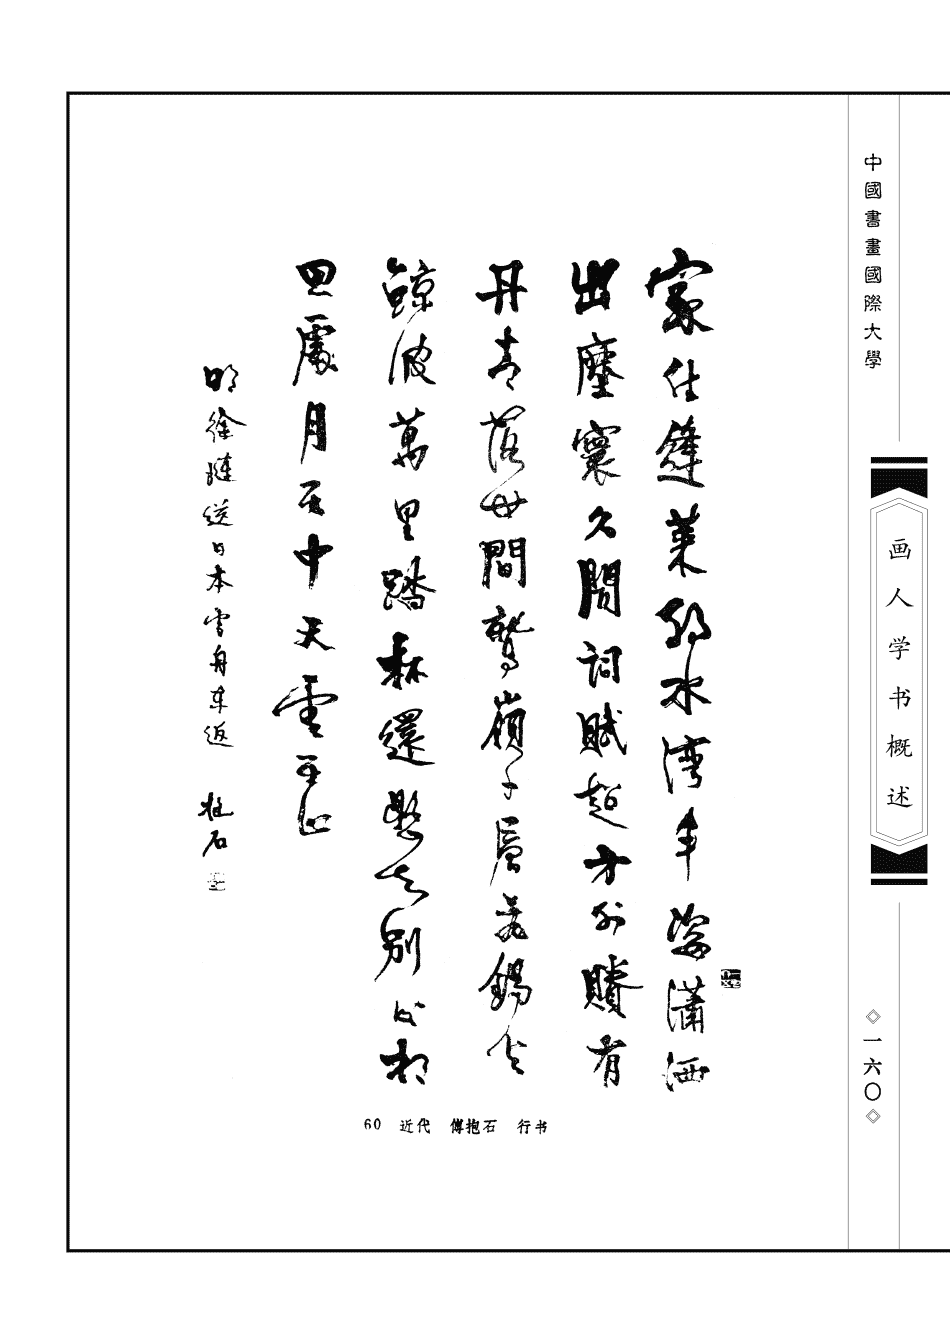 中國書畫國際大學
画人学书概述
一六〇
家住蓬萊弱水湾丰姿瀟洒
出塵寰久聞詞賦超方外賸有
丹青落世間鷲嶺千層飛錫去
鯨波萬里踏杯還懸知別後相
思處月在中天雲在山
明徐璉送日本雪舟东返 抱石
60 近代 傅抱石 行书